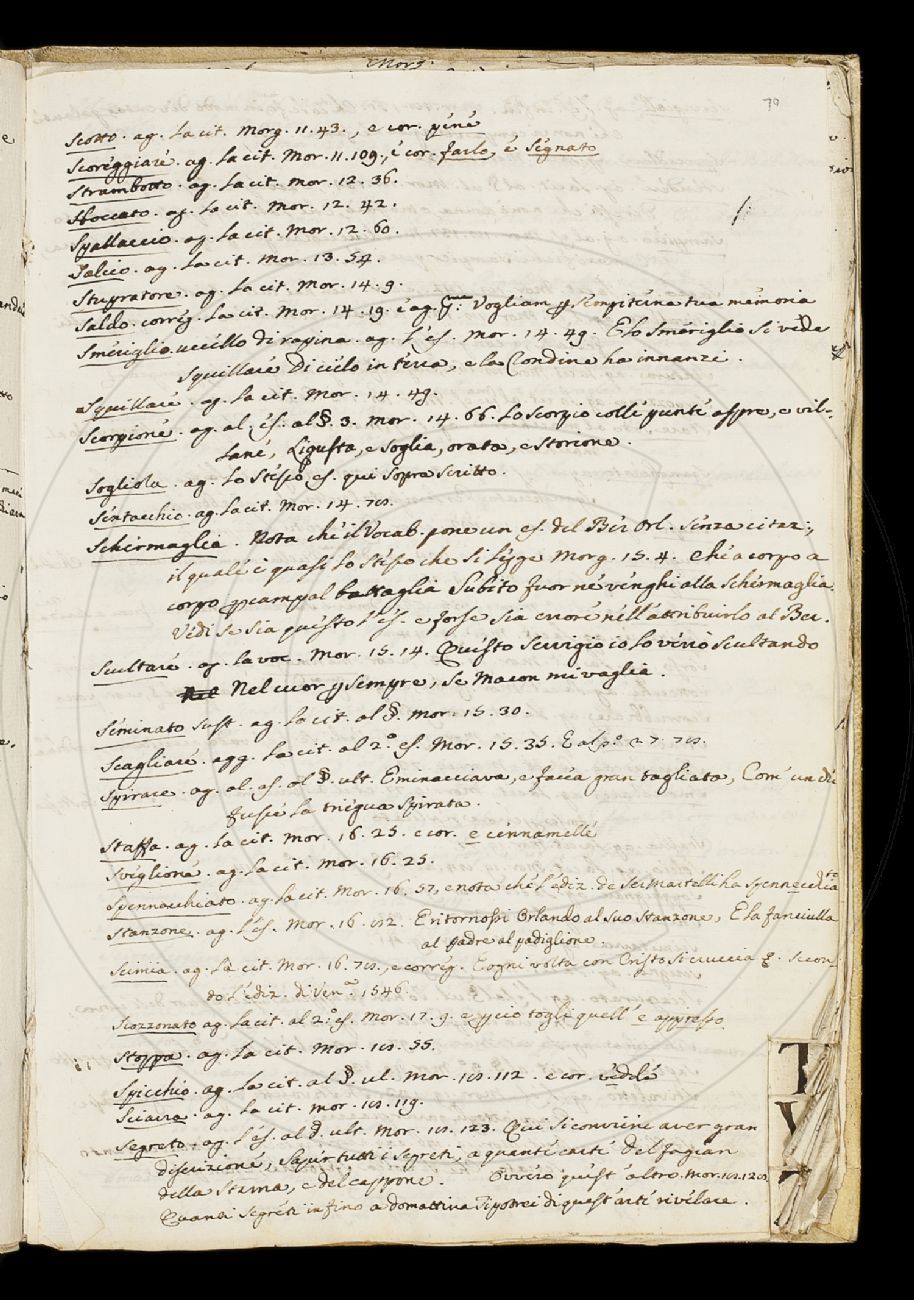 Morg.
70
Scotto. ag. la cit. Morg. 11. 43., e cor. pene
Scoreggiare. ag. la cit. Mor. 11. 109., e cor. farlo, e segnato
Strambotto. ag. la cit. Mor. 12. 36.
Sboccato. ag. la cit. Mor. 12. 42.
Spallaccio. ag. la cit. Mor. 12. 60.
Salcio. ag. la cit. Mor. 13. 54.
Stupratore. ag. la cit. Mor. 14. 9.
Saldo. correg. la cit. Mor. 14. 19. e ag. Vogliam sempiterna tua memoria
Smeriglio. uccello di rapina. ag. l'es. Mor. 14. 49. E lo smeriglio si vede
squillare Di cielo in terra, e la rondine ha innanzi.
Squillare. ag. la cit. Mor. 14. 49.
Scorpione. ag. al. es. al §. 3. Mor. 14. 66. Lo scorpio colle punte aspre, e vil-
lane, Ligusta, e soglia, orata, e storione.
Sogliola. ag. lo stesso es. qui sopra scritto.
Sentacchio. ag. la cit. Mor. 14. 78.
Schermaglia. Nota che il Vocab. pone un es. del Ber. Orl. senza citaz.,
il quale è quasi lo stesso che si legge Morg. 15. 4. Che a corpo a
corpo campal battaglia Subito fuor ne venghi alla schermaglia.
Vedi se sia questo l'es. e forse sia errore nell'attribuirlo al Ber.
Scultare. ag. la voc. Mor. 15. 14. Questo servigio io lo verrò scultando
Nel cuor p sempre, se Macon mi vaglia.
Seminato sust. ag. la cit. al §. Mor. 15. 30.
Scagliare. agg. la cit. al 2.° es. Mor. 15. 35. E al 27. 78.
Spirrare. ag. al. es. al §. ult. E minacciava, e facea gran tagliata, Com' un dì
fusse la triegua spirata.
Staffa. ag. la cit. Mor. 16. 25. e cor. e cennamelle
Sveglione. ag. la cit. Mor. 16. 25.
Spennacchiato ag. la cit. Mor. 16. 57, e nota che l'ediz. de Sermartelli ha spennecchiato
Stanzone. ag. l'es. Mor. 16. 82. E ritornossi Orlando al suo stanzone, E la fanciulla
al padre al padiglione.
Scimia. ag. la cit. Mor. 16. 78., e correg. E ogni volta con Cristo si cruccia &. secon-
do l'ediz. di Ven.ª 1546.
Scozzonato ag. la cit. al 2.° es. Mor. 17. 9. e pciò togli quell' e appresso
Stoppa. ag. la cit. Mor. 18. 55.
Spicchio. ag. la cit. al §. ul. Mor. 18. 112. e cor. vedela
Sciarra. ag. la cit. Mor. 18. 119.
Segreto. ag. l'es. al §. ult. Mor. 18. 123. Qui si conviene aver gran
discrezione, Saper tutti i segreti, a quante carte Del fagian
della starna, e del cappone. Ovvero quest' altro. Mor. 18. 128.
Quanti segreti infino a domattina Ti potrei di quest' arte rivelare.